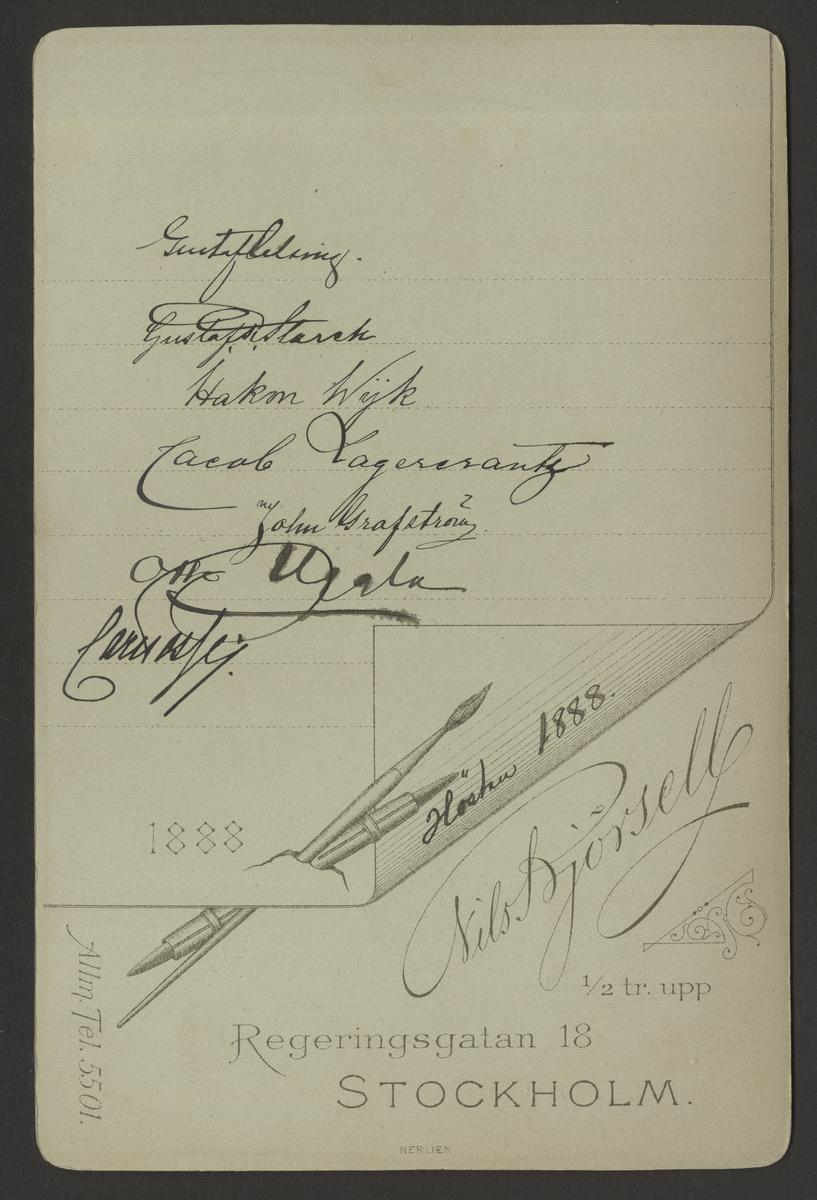 Gustaf Celsing.
Gustaf Starck
Hakon Wijk
Jacob Lagercrantz
John Grafström
Otto Uggla
Hösten 1888.
1888
Nils Björsell
1/2 tr. upp
Allm. Tel. 5501.
Regeringsgatan 18
STOCKHOLM.
NERLIEN